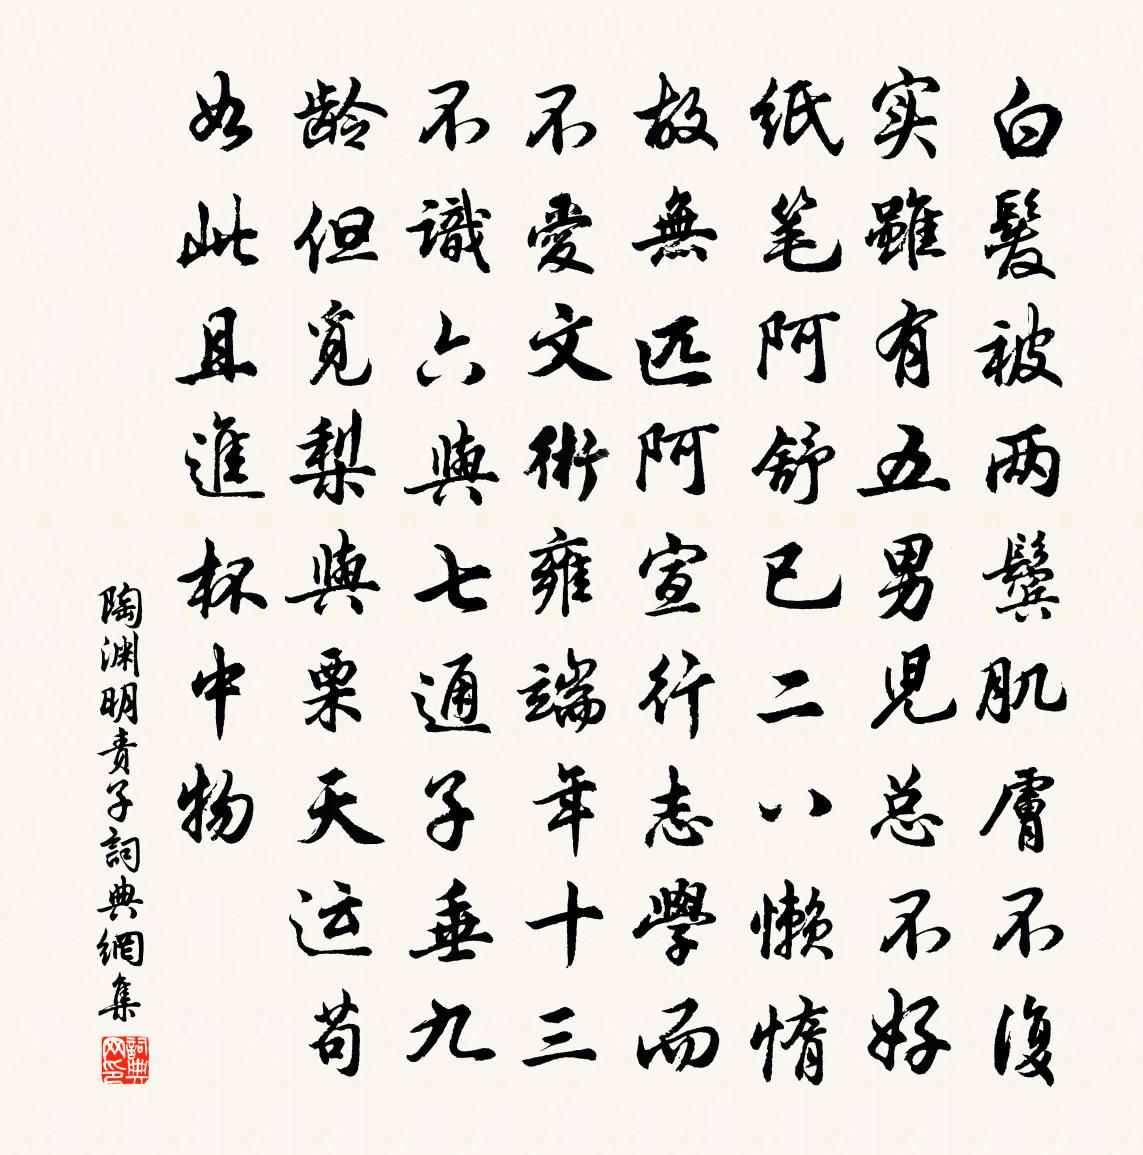 白髮被两鬓肌膚不復
实雖有五男児总不好
纸笔阿舒已二八懒惰
故無匹阿宣行志學而
不愛文術雍端年十三
不識六與七通子垂九
龄但觅梨與栗天运苟
如此且進杯中物
陶渊明责子詞典網集
詞典网印